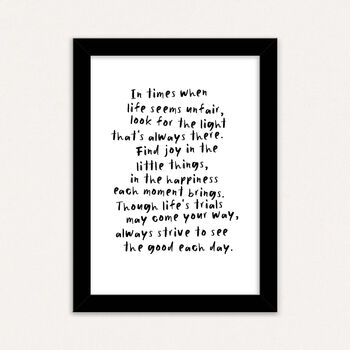 In times when
life seems unfair,
look for the light
that's always there.
Find joy in the
little things,
in the happiness
each moment brings.
Though life's trials
may come your way,
always strive to see
the good each day.